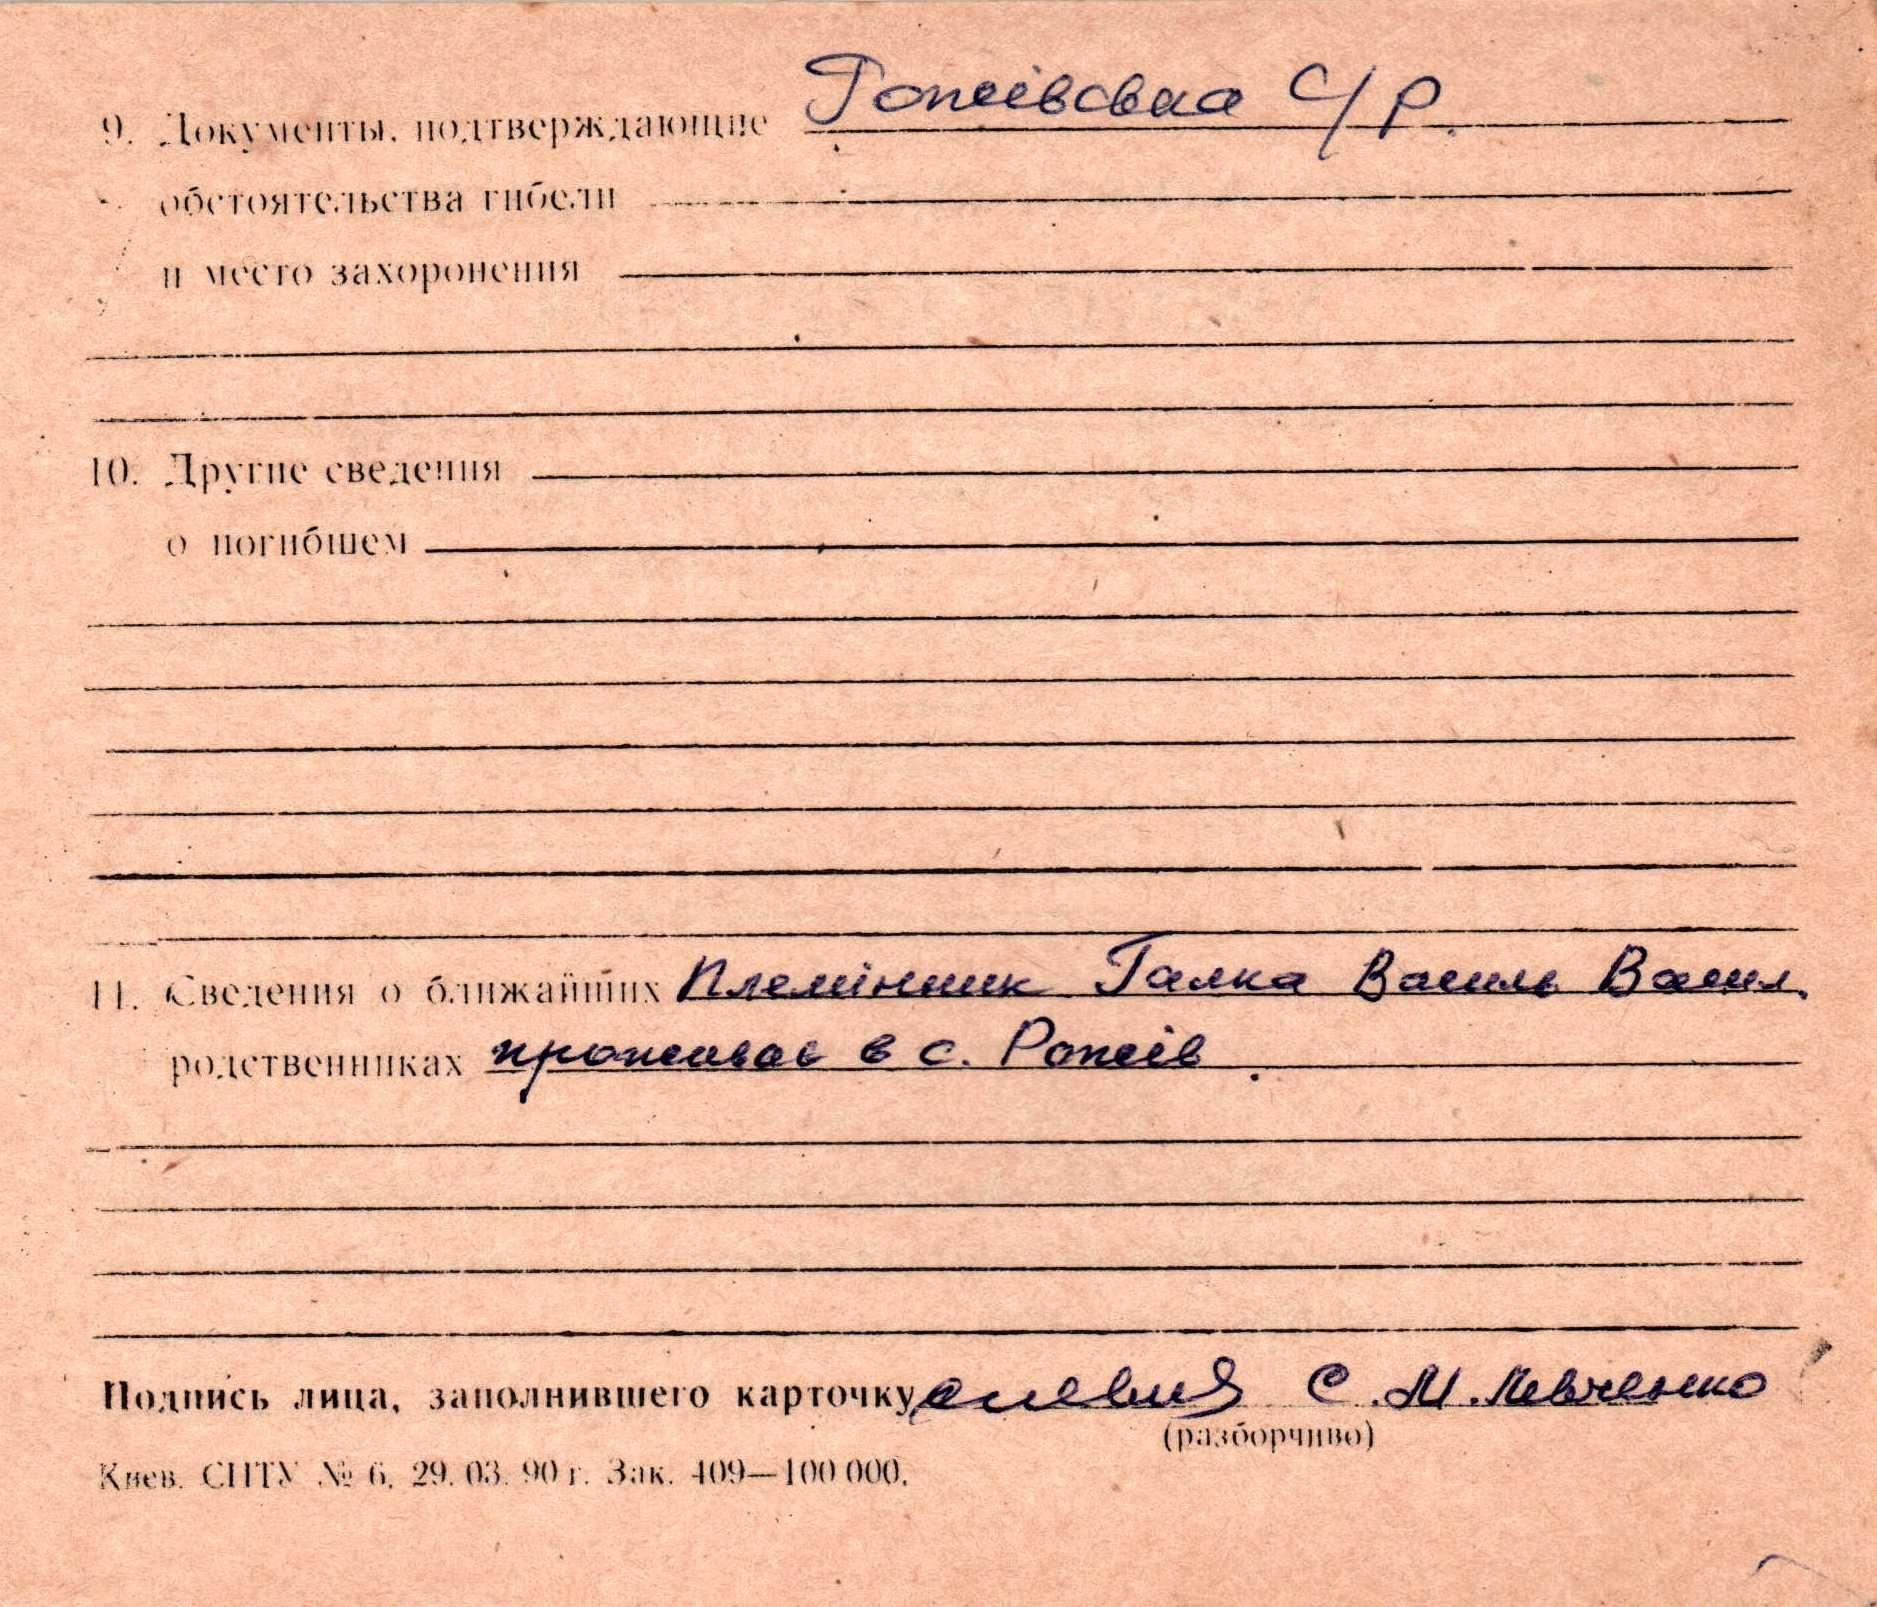 9. Документы, подтверждающие Рожівська С/Р.
обстоятельства гибели
и место захоронения
10. Другие сведения
о погибшем
11. Сведения о ближайших Племінник Галка Василь Васил.
родственниках проживає в с. Рожів
Подпись лица, заполнившего карточку С. М. Левченко
(разборчиво)
Киев. СПТУ № 6. 29. 03. 90 г. Зак. 409—100 000.